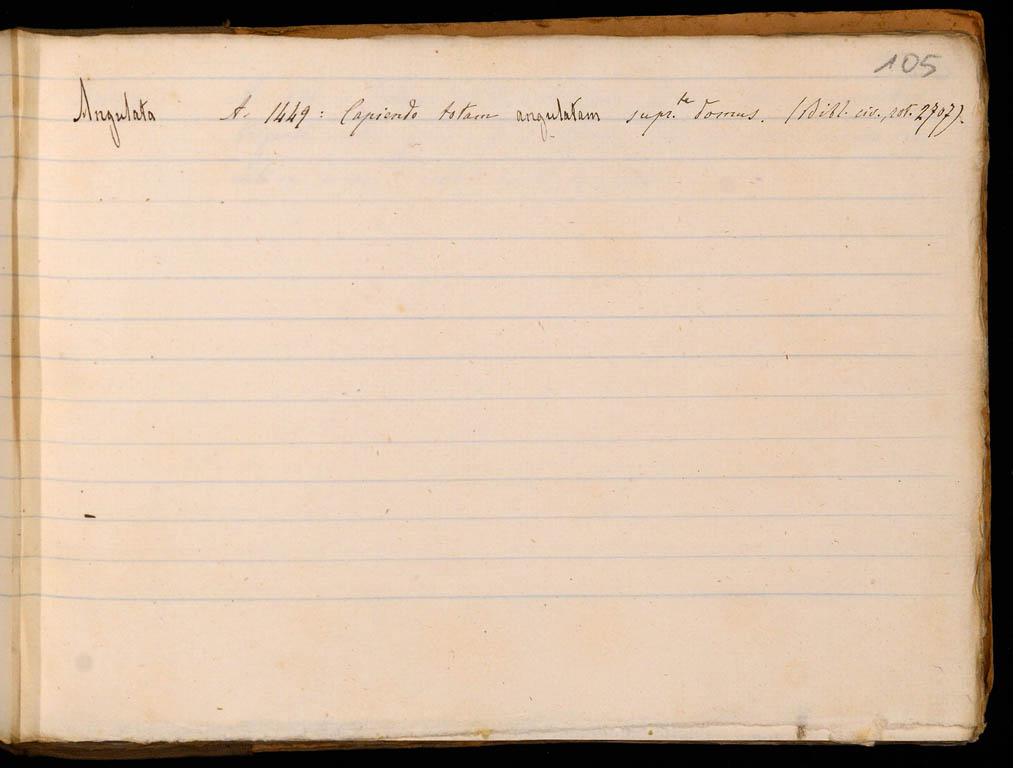 105
Angulata A. 1449: Capiendo totam angulatam supr.te domus. (Bibl. civ., rot. 2707).